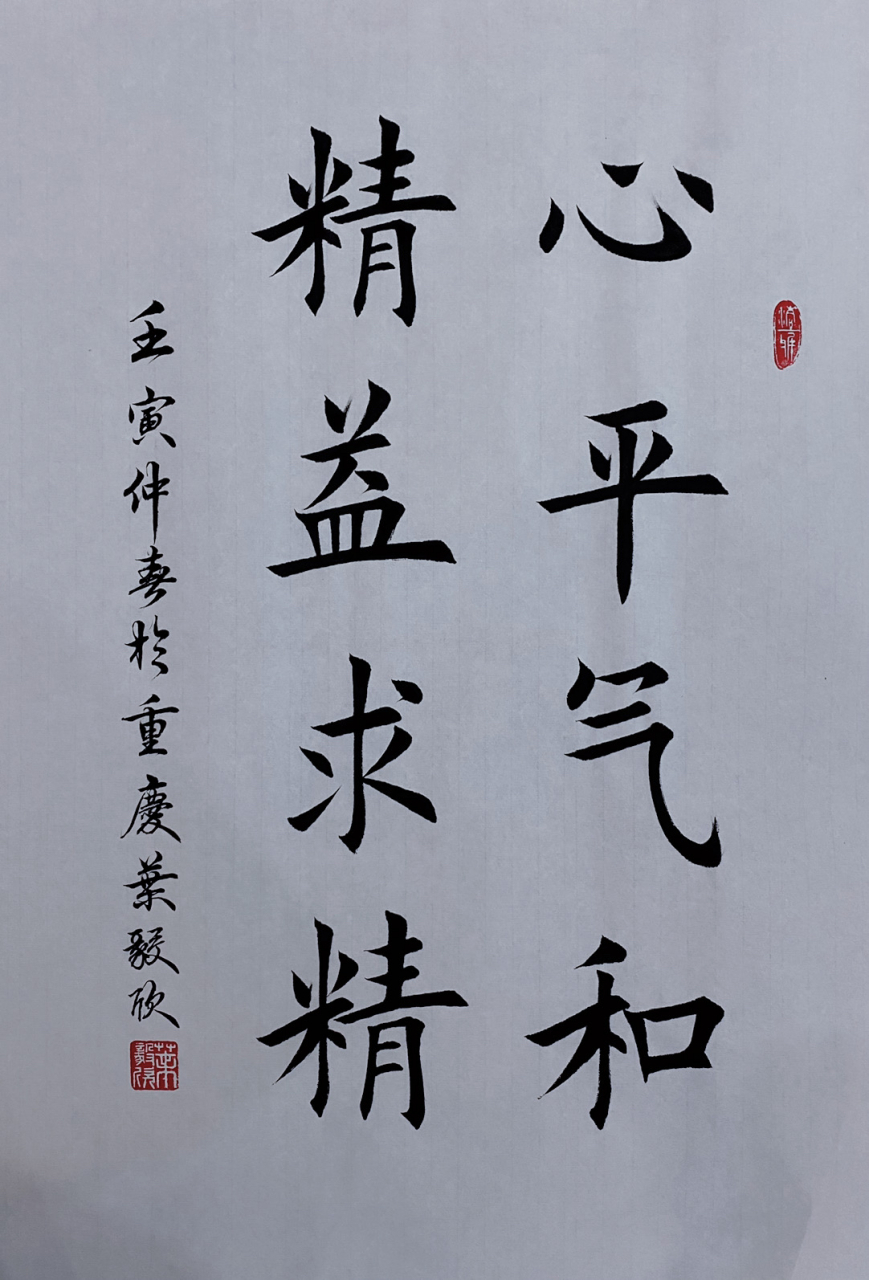 心平气和
精益求精
壬寅仲春於重慶葉毅欣
葉毅欣